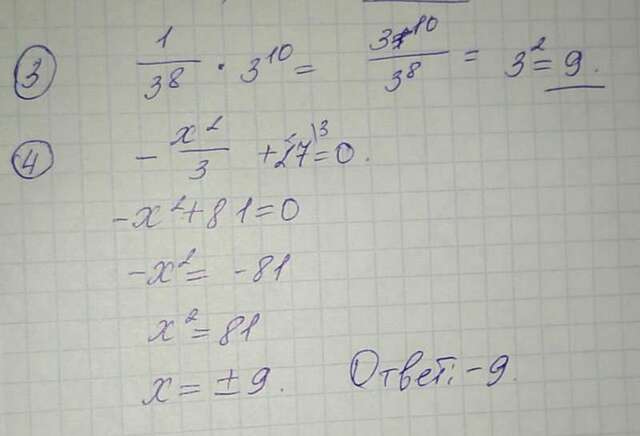 ③ 1/3⁸ · 3¹⁰ = 3¹⁰/3⁸ = 3² = 9.
④ - x²/3 + 27⁾³ = 0.
-x² + 81 = 0
-x² = -81
x² = 81
x = ± 9. Ответ: -9.